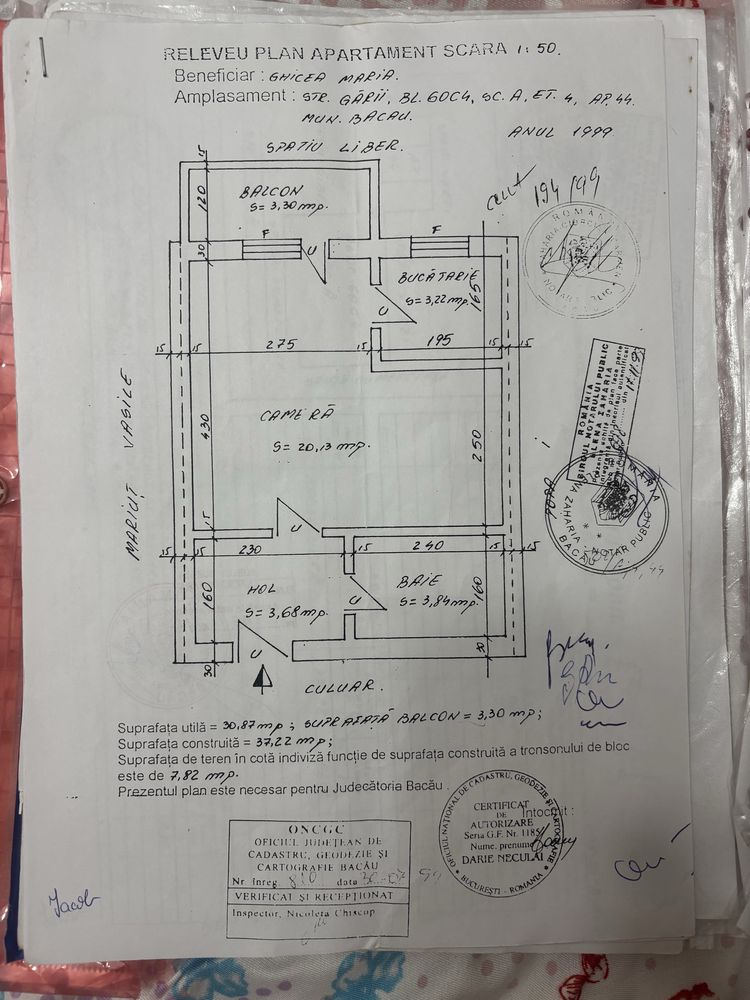 RELEVEU PLAN APARTAMENT SCARA 1:50.
Beneficiar : GHICEA MARIA.
Amplasament : STR. GĂRII, BL. 60C4, SC. A, ET. 4, AP. 44.
MUN. BACAU.
ANUL 1999
SPATIU LIBER.
194/99
15
120
BALCON
S= 3,30 mp.
30
F
U
F
BUCĂTARIE
S= 3,22 mp.
165
U
15 15 275 15 195 15 15
MARIUȚ VASILE
430
CAMERĂ
S= 20,13 mp.
250
15
U
15 15 230 15 240 15 15
160
HOL
S= 3,68 mp.
U
BAIE
S= 3,84 mp.
160
30
U
30
CULUAR.
ROMÂNIA
BIROUL NOTARULUI PUBLIC
ELENA ZAHARIA
ROMÂNIA
ZAHARIA
NOTAR PUBLIC
BACĂU
Suprafața utilă = 30,87 mp ; SUPRAFAȚĂ BALCON = 3,30 mp;
Suprafața construită = 37,22 mp;
Suprafața de teren în cotă indiviză funcție de suprafața construită a tronsonului de bloc
este de 7,82 mp.
Prezentul plan este necesar pentru Judecătoria Bacău.
Întocmit :
OFICIUL NAȚIONAL DE CADASTRU, GEODEZIE ȘI CARTOGRAFIE
CERTIFICAT
DE
AUTORIZARE
Seria G.F. Nr. 1185
Nume, prenume
DARIE NECULAI
BUCUREȘTI - ROMANIA
ONCGC
OFICIUL JUDEȚEAN DE
CADASTRU, GEODEZIE ȘI
CARTOGRAFIE BACĂU
Nr. înreg. data
VERIFICAT ȘI RECEPȚIONAT
Inspector, Nicoleta Chiscup
Iacob